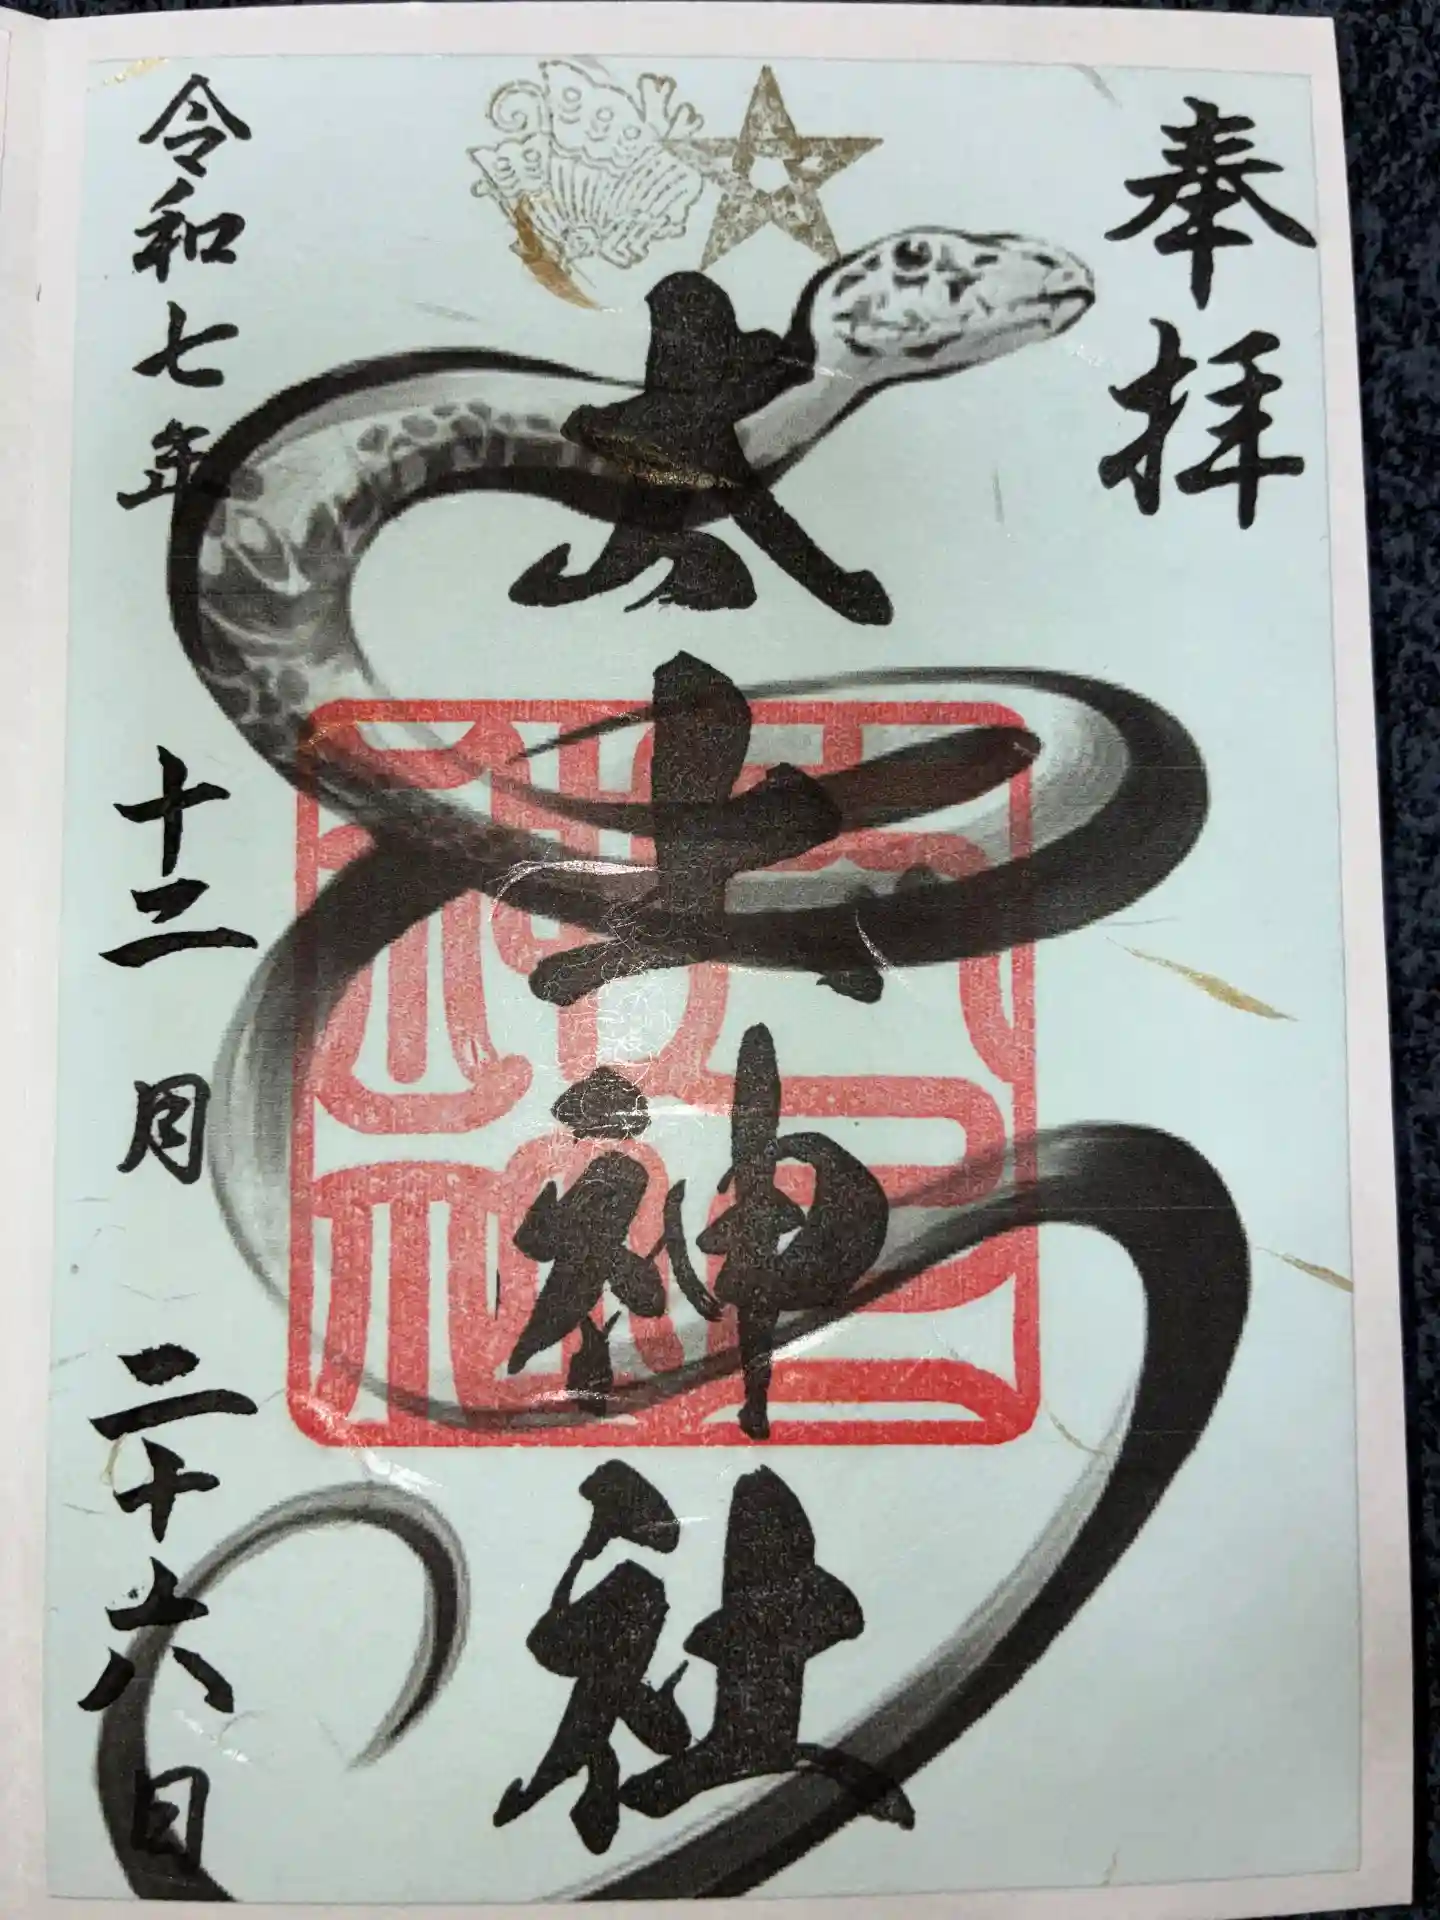 奉拝
太上神社
令和七年十二月二十六日